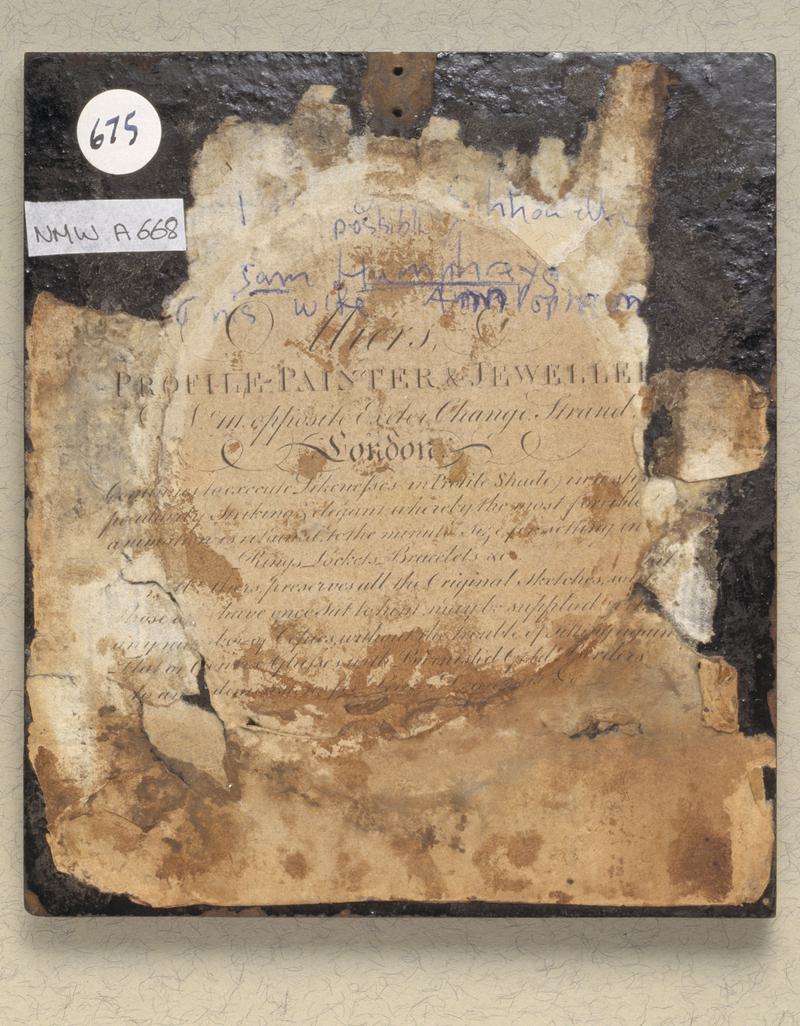 675
NMW A 668
possibly
Sam Humphreys
wife Ann
Miers,
PROFILE-PAINTER & JEWELLER
opposite Exeter Change Strand
London
to execute Likenesses in Profile Shade in a style
peculiarly Striking & elegant whereby the most forcible
animation is retained to the minute size for setting in
Rings, Lockets, Bracelets &c.
Miers preserves all the Original Sketches, so
those have once Sat to him may be supplied
any number of Copies without the trouble of sitting again
Flat or Convex Glasses with Burnished Gold Borders
to any